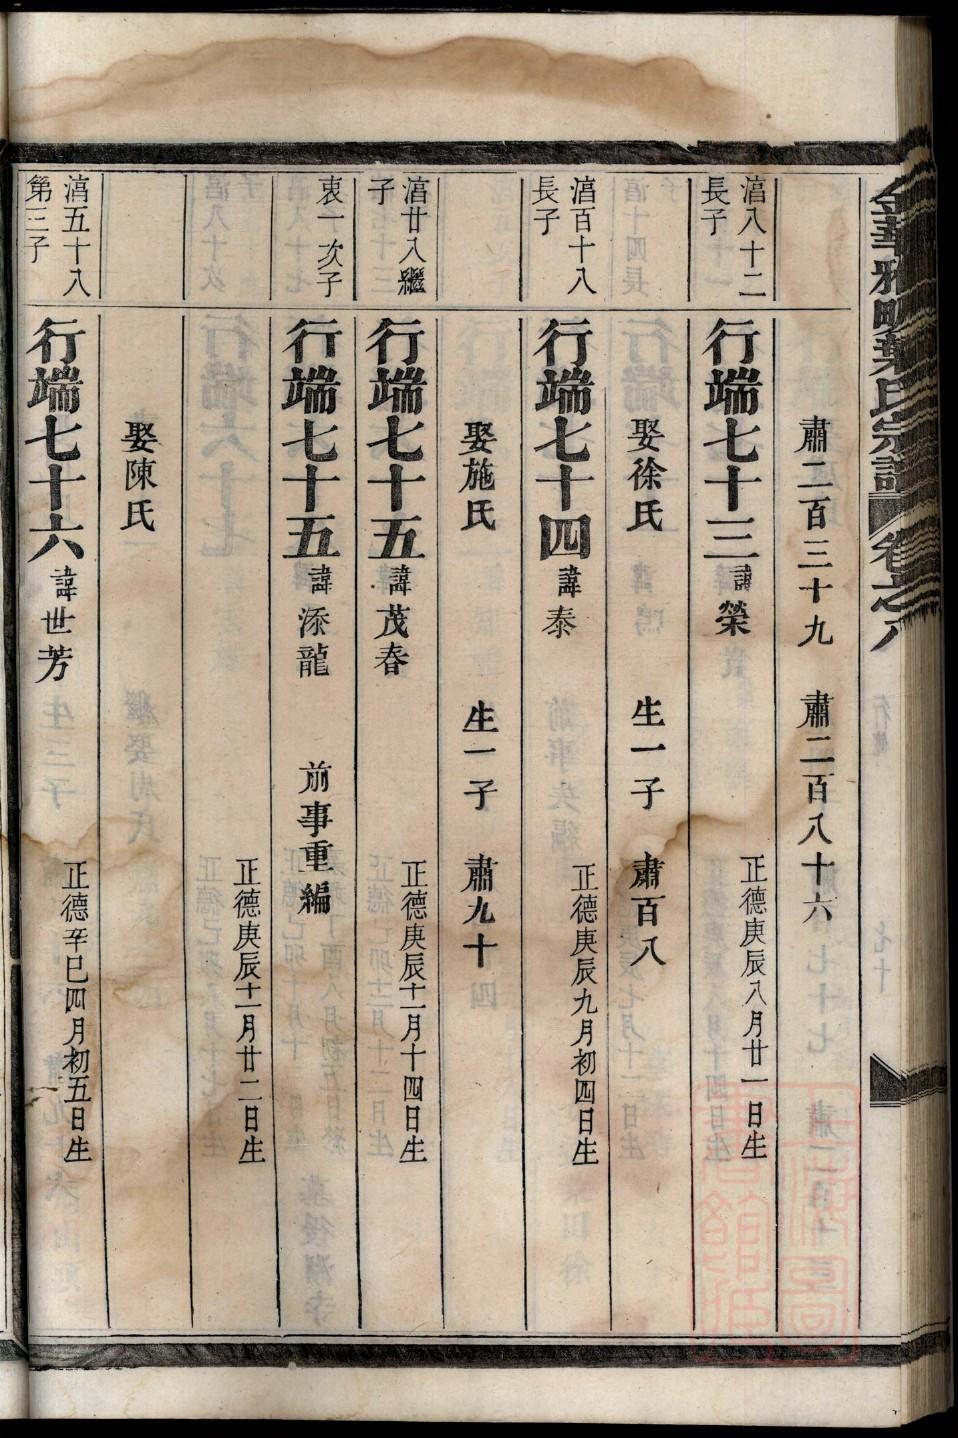 金華雅畈葉氏宗譜 卷之八
肅二百三十九 肅二百八十六
㵮八十二長子
行端七十三 諱榮 正德庚辰八月廿一日生
娶徐氏 生一子 肅百八
㵮百十八長子
行端七十四 諱泰 正德庚辰九月初四日生
娶施氏 生一子 肅九十
㵮廿八繼子
行端七十五 諱茂春 正德庚辰十一月十四日生
衷一次子
行端七十五 諱添龍 前事重編
正德庚辰十一月廿二日生
娶陳氏
㵮五十八第三子
行端七十六 諱世芳 正德辛巳四月初五日生